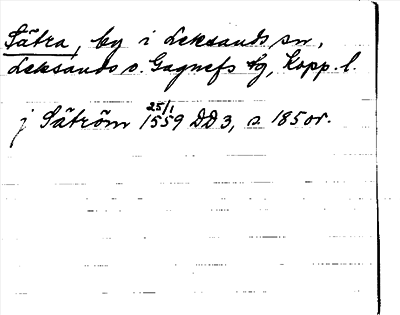 Sätra, by i Leksands sn,
Leksands o. Gagnefs tg, Kopp. l.
j Säträm 25/1 1559 DD3, s 185 or.